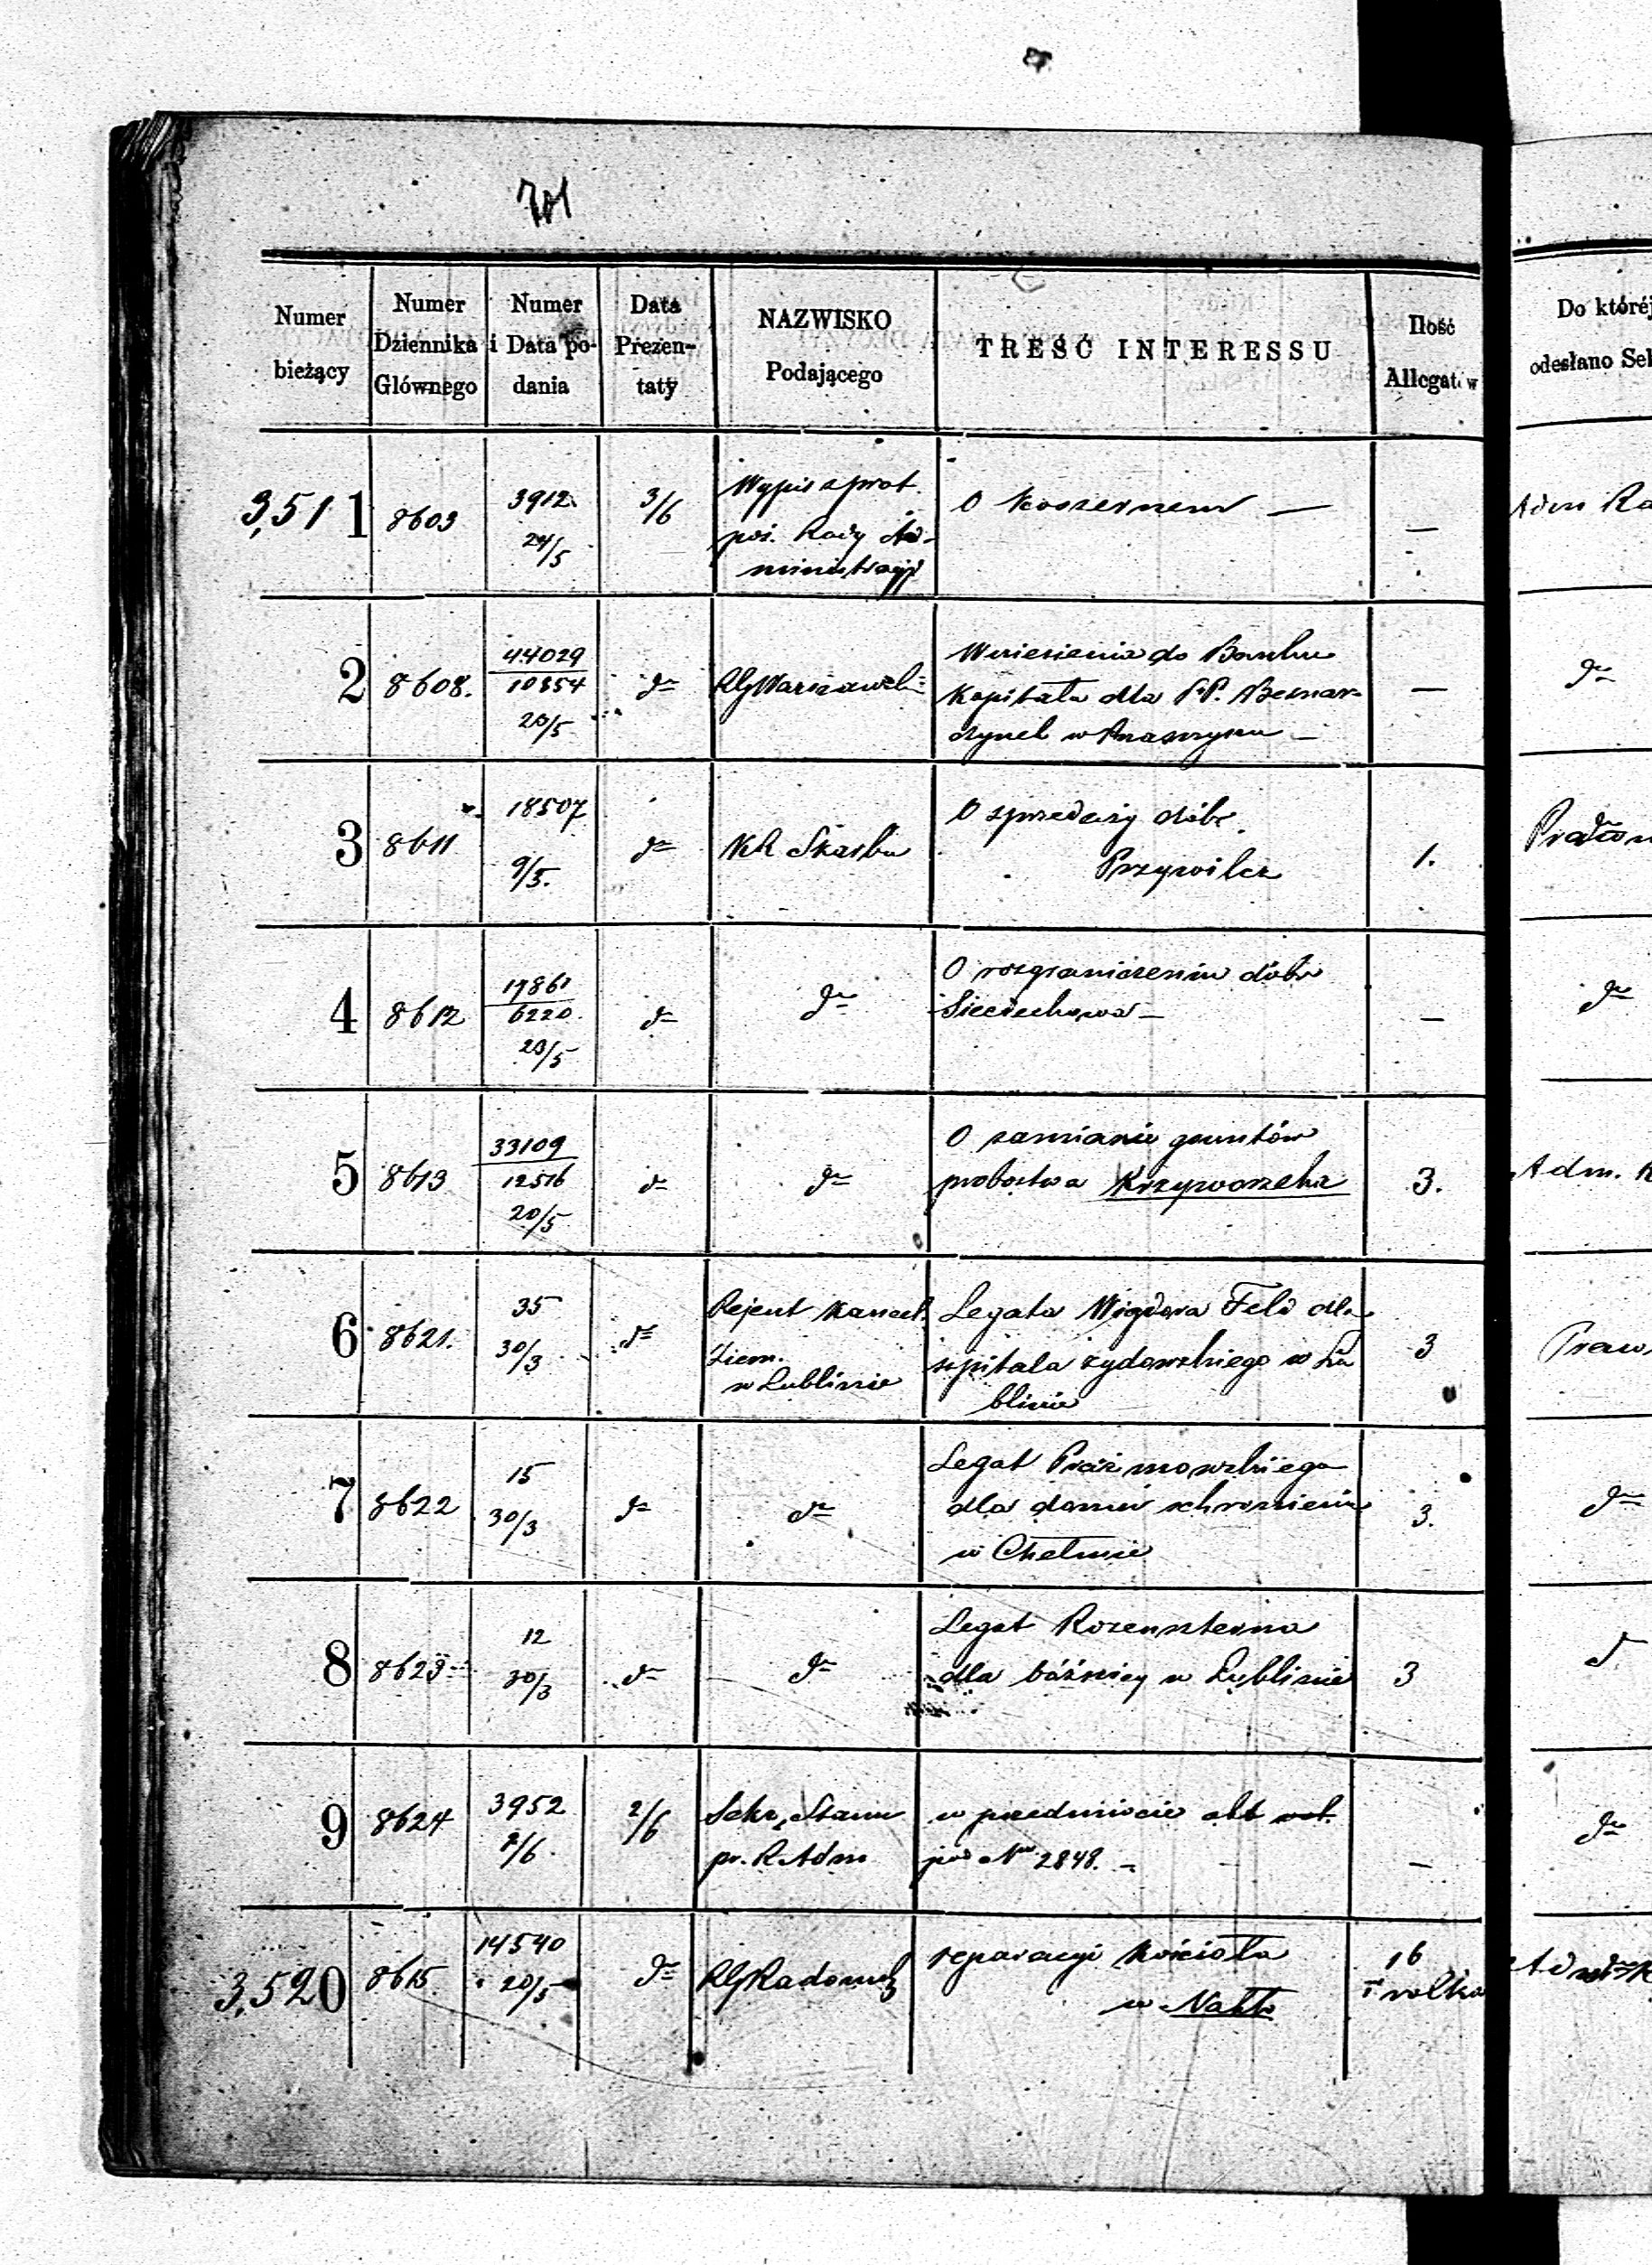 701
Numer bieżący | Numer Dziennika Głównego | Numer i Data podania | Data Prezentaty | NAZWISKO Podającego | TREŚĆ INTERESSU | Ilość Allegatów | Do któréj odesłano Sek
3,511 | 8603 | 3912 24/5 | 3/6 | Wypis z prot. pos. Rady Administracyj | O Koszernem — | — | Adm Ra
2 | 8608. | 44029 10854 20/5 | dto | RG Warszawski | Wniesienie do Banku Kapitału dla P.P. Bernardynek w Prasnyszu — | — | dto
3 | 8611 | 18507 9/5. | dto | KR Skarbu | O sprzedaży dóbr Przywilcz | 1. | Prawn
4 | 8612 | 17861 6220. 23/5 | dto | dto | O rozgraniczeniu dóbr Sieciechowa — | — | dto
5 | 8613 | 33109 12516 20/5 | dto | dto | O zamianie gruntów probostwa Krzyworzeka | 3. | Adm. R
6 | 8621. | 35 30/3 | dto | Rejent Kancel. Ziem. w Lublinie | Legata Wigdora Feld dla szpitala żydowskiego w Lublinie | 3 | Praw.
7 | 8622 | 15 30/3 | dto | dto | Legat Prażmowskiego dla domu schronienia w Chełmie | 3. | dto
8 | 8623 | 12 30/3 | dto | dto | Legat Rozensterna dla bóżnicy w Lublinie | 3 | d
9 | 8624 | 3952 2/6 | 2/6 | Sekr. Stanu pr. R. Adm | w przedmiocie akt pod Nm 2848. — | — | dto
3,520 | 8615 | 14540 20/5 | dto | RG Radomsk | reparacyi Kościoła w Nakło | 16 1 rolka | Adm